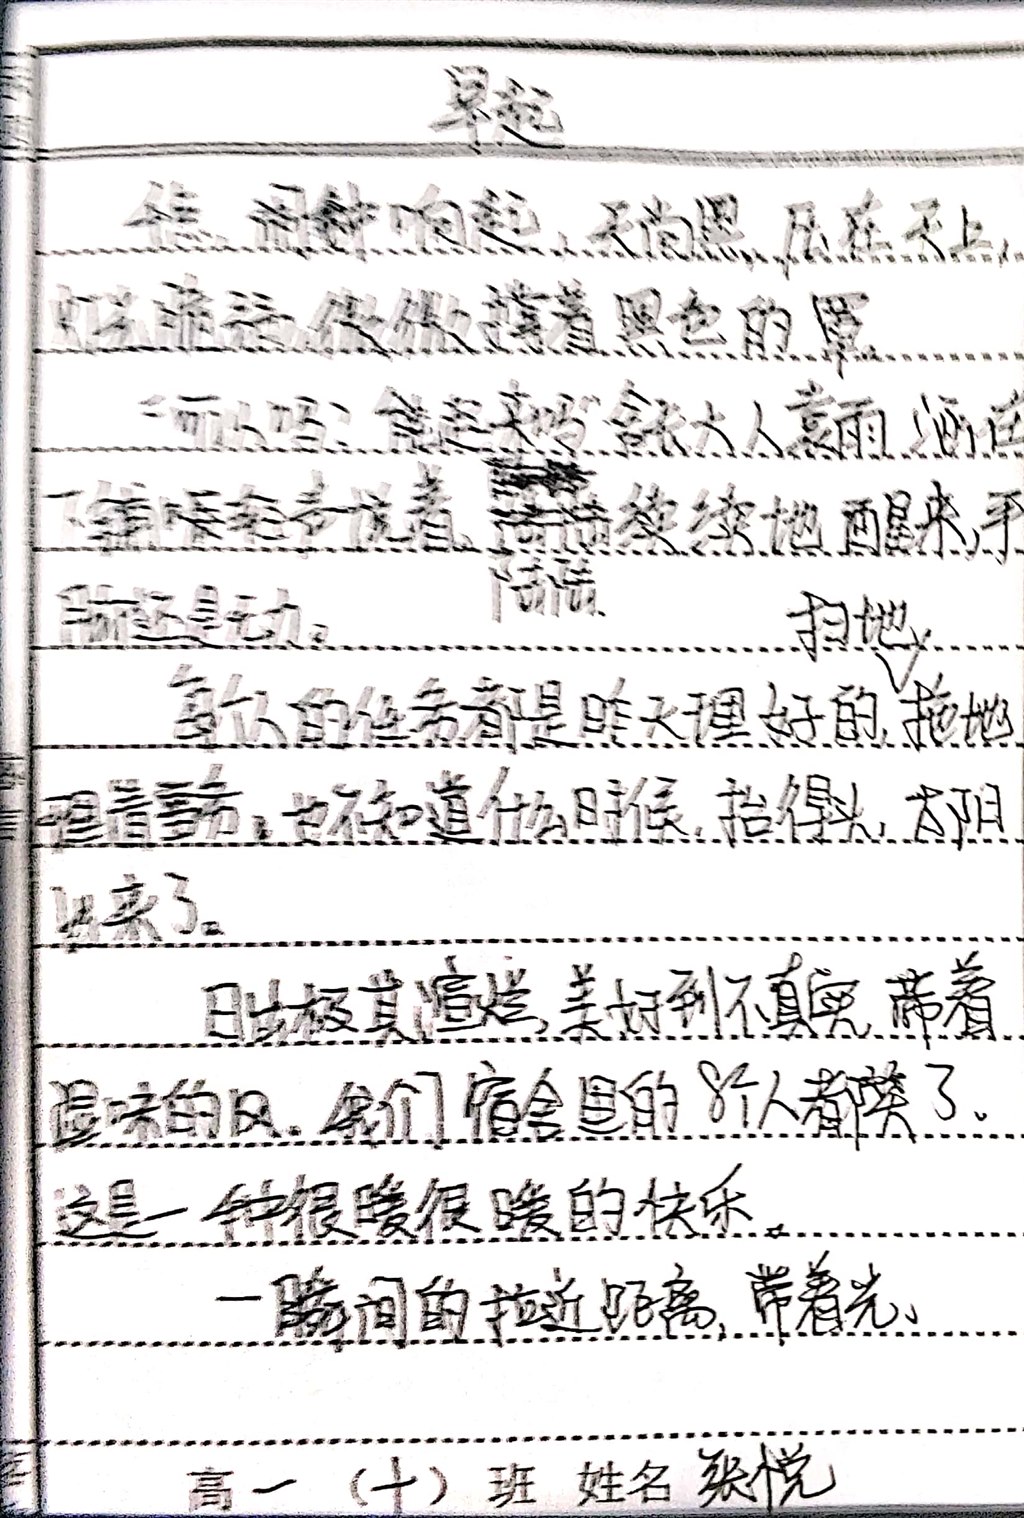 早起
闹钟响起,天尚黑,压在天上,
灯光暗淡,微微撑着黑色的罩
“可以吗?能起来吗”舍长大人袁雨涵在
下铺轻声说着,陆陆续续地醒来,手
脚还是无力。
扫地,
每个人的任务都是昨天理好的,拖地
也不知道什么时候,抬得头,太阳
出来了。
日出极其渲烂,美好到不真实,带着
湿味的风。我们宿舍里的8个人都笑了。
这是一钟很暖很暖的快乐。
一瞬间的拉近距离,带着光、
高一(十)班 姓名 张悦